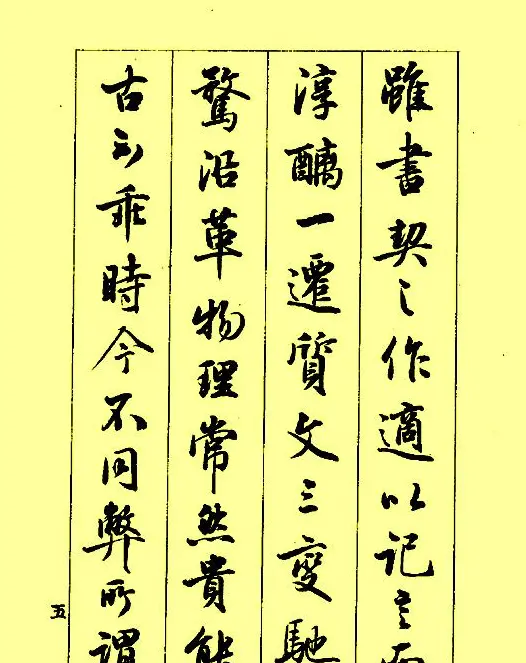 雖書契之作適以記言而
淳醨一遷質文三變馳
騖沿革物理常然貴能
古不乖時今不同弊所謂
五